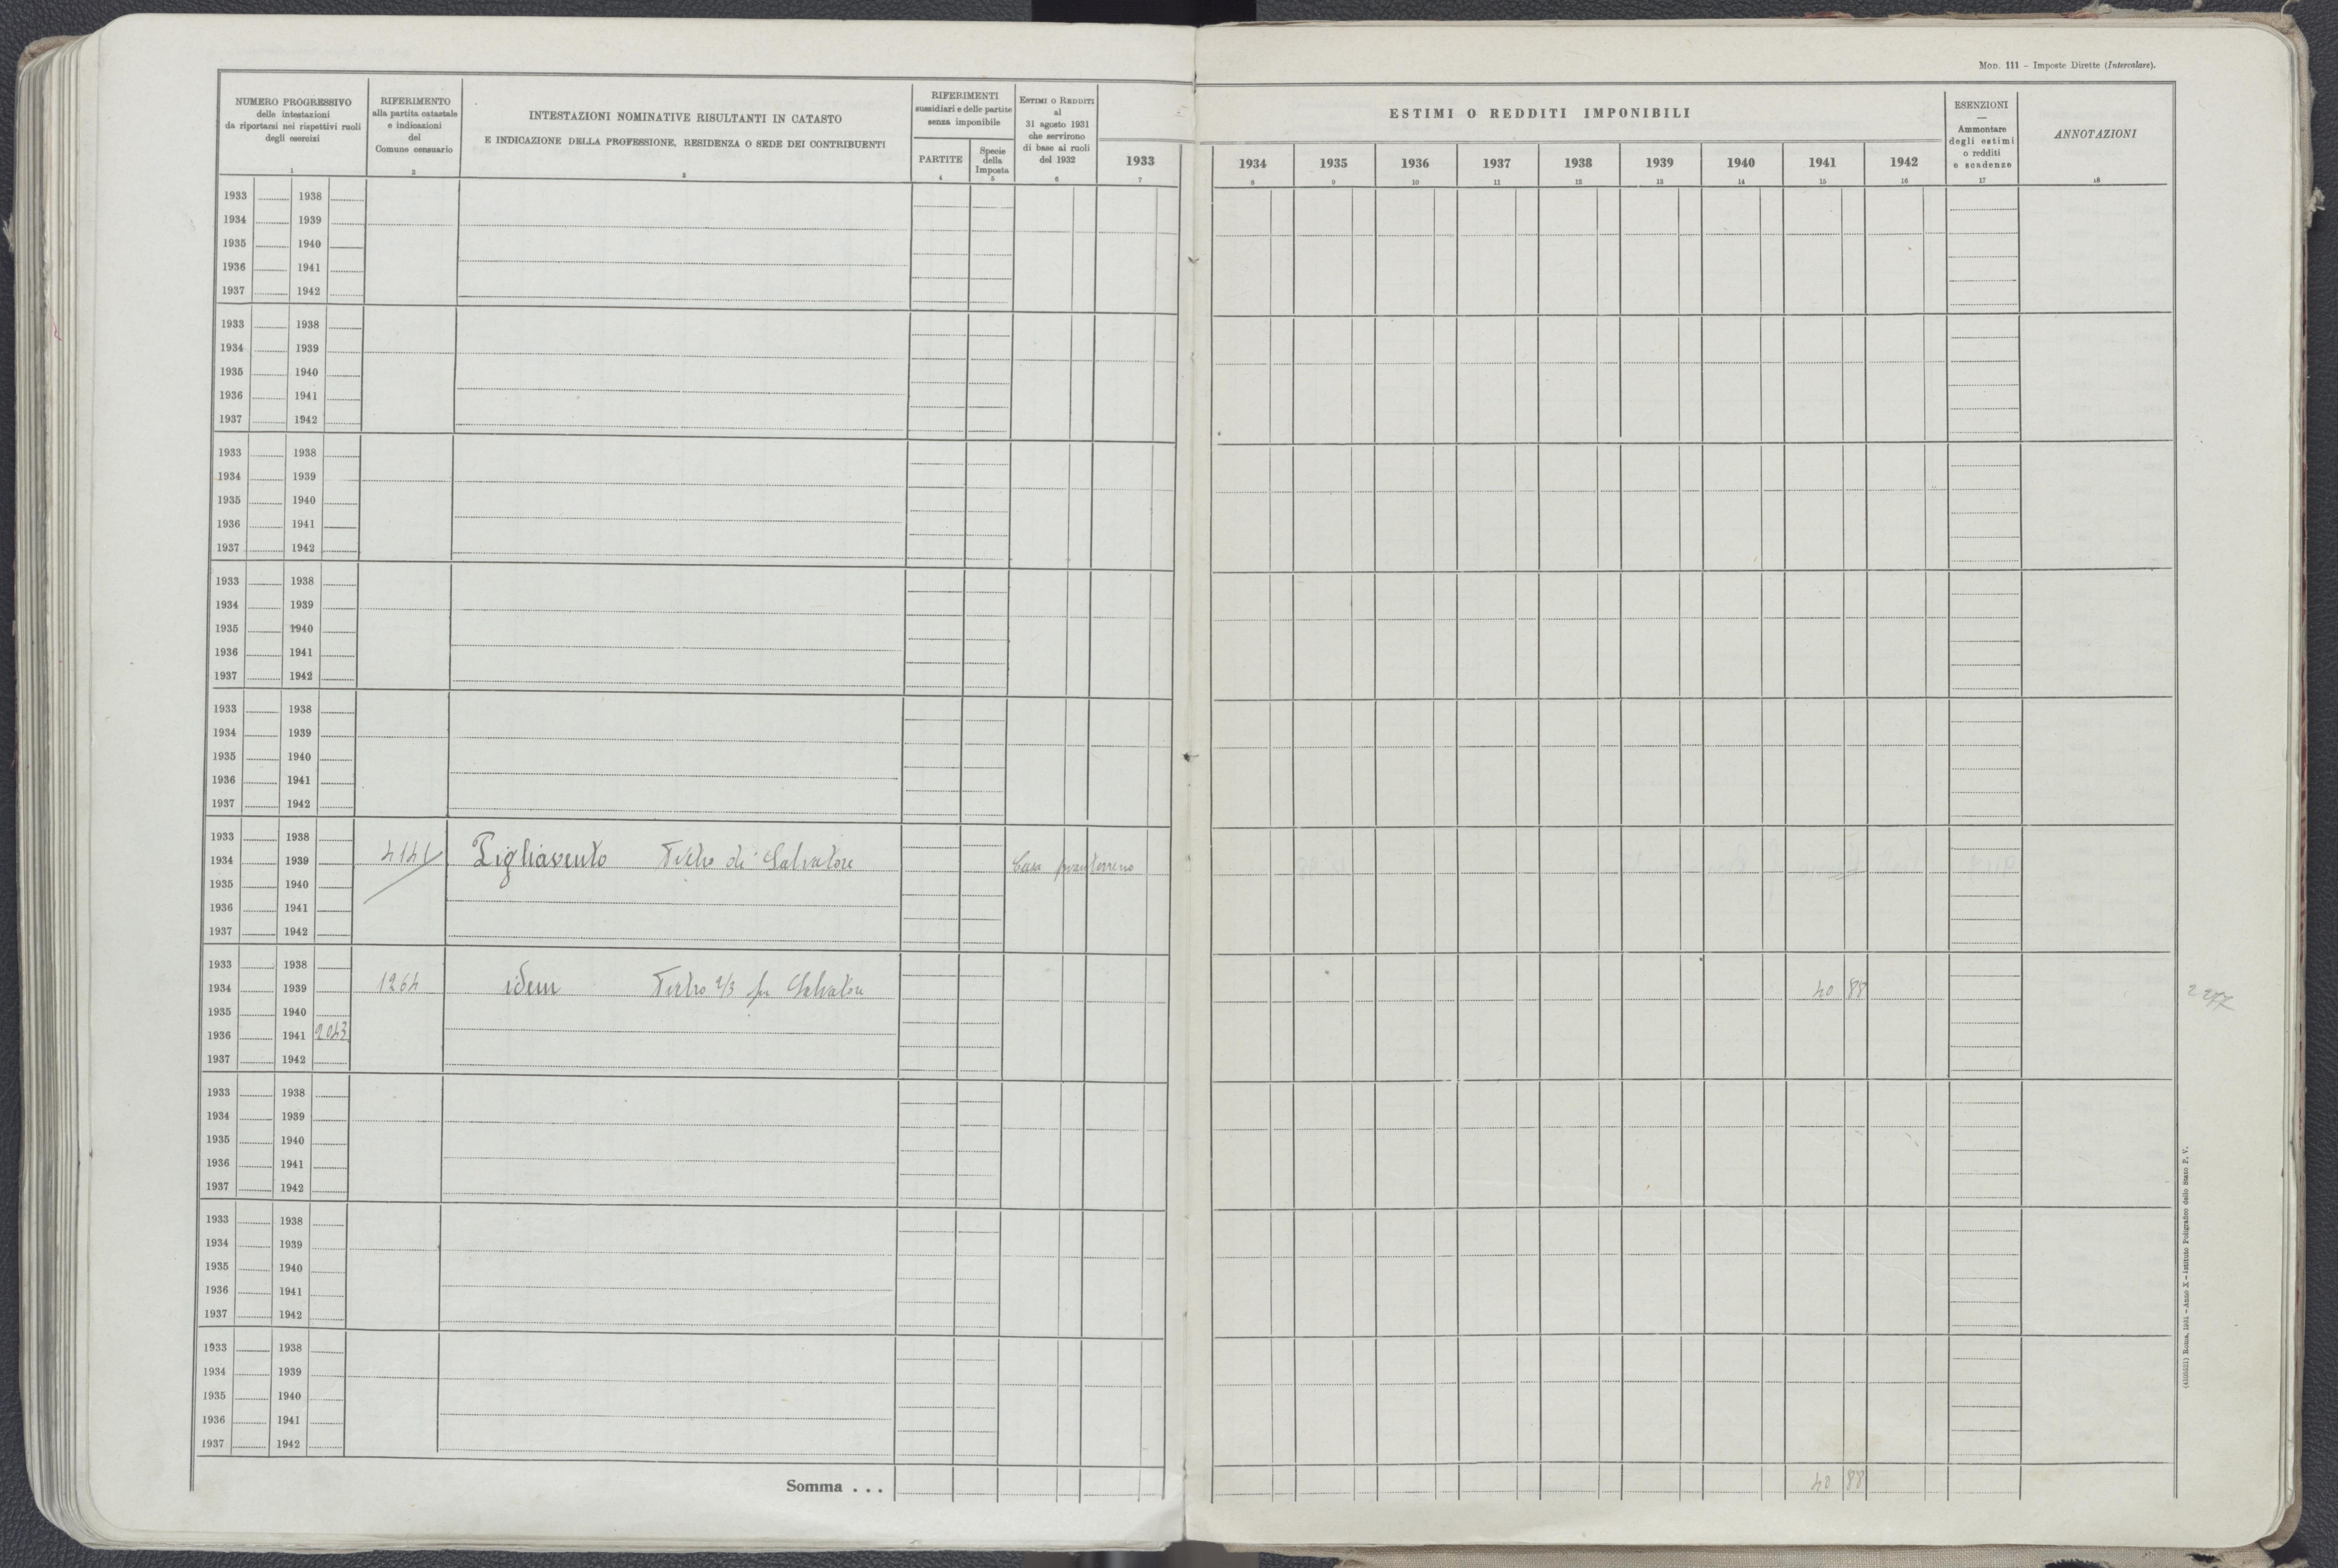 MOD. 111 – Imposte Dirette (Intercalare).
NUMERO PROGRESSIVO
delle intestazioni
da riportarsi nei rispettivi ruoli
degli esercizi
1
RIFERIMENTO
alla partita catastale
e indicazioni
del
Comune censuario
2
INTESTAZIONI NOMINATIVE RISULTANTI IN CATASTO
E INDICAZIONE DELLA PROFESSIONE, RESIDENZA O SEDE DEI CONTRIBUENTI
3
RIFERIMENTI
sussidiari e delle partite
senza imponibile
PARTITE
4
Specie
della
Imposta
5
ESTIMI O REDDITI
al
31 agosto 1931
che servirono
di base ai ruoli
del 1932
6
1933
7
ESTIMI O REDDITI IMPONIBILI
1934 1935 1936 1937 1938 1939 1940 1941 1942
8 9 10 11 12 13 14 15 16
ESENZIONI
—
Ammontare
degli estimi
o redditi
e scadenze
17
ANNOTAZIONI
18
1933 1938
1934 1939
1935 1940
1936 1941
1937 1942
1933 1938
1934 1939
1935 1940
1936 1941
1937 1942
1933 1938
1934 1939
1935 1940
1936 1941
1937 1942
1933 1938
1934 1939
1935 1940
1936 1941
1937 1942
1933 1938
1934 1939
1935 1940
1936 1941
1937 1942
1933 1938
1934 1939 4141 Pigliavento Pietro di Salvatore Casa pianterreno
1935 1940
1936 1941
1937 1942
1933 1938
1934 1939 1264 idem Pietro 2/3 fu Salvatore 40 88
1935 1940
1936 1941 2043
1937 1942
1933 1938
1934 1939
1935 1940
1936 1941
1937 1942
1933 1938
1934 1939
1935 1940
1936 1941
1937 1942
1933 1938
1934 1939
1935 1940
1936 1941
1937 1942
Somma . . . 40 88
Roma, 1931 – Anno X – Istituto Poligrafico dello Stato P. V.